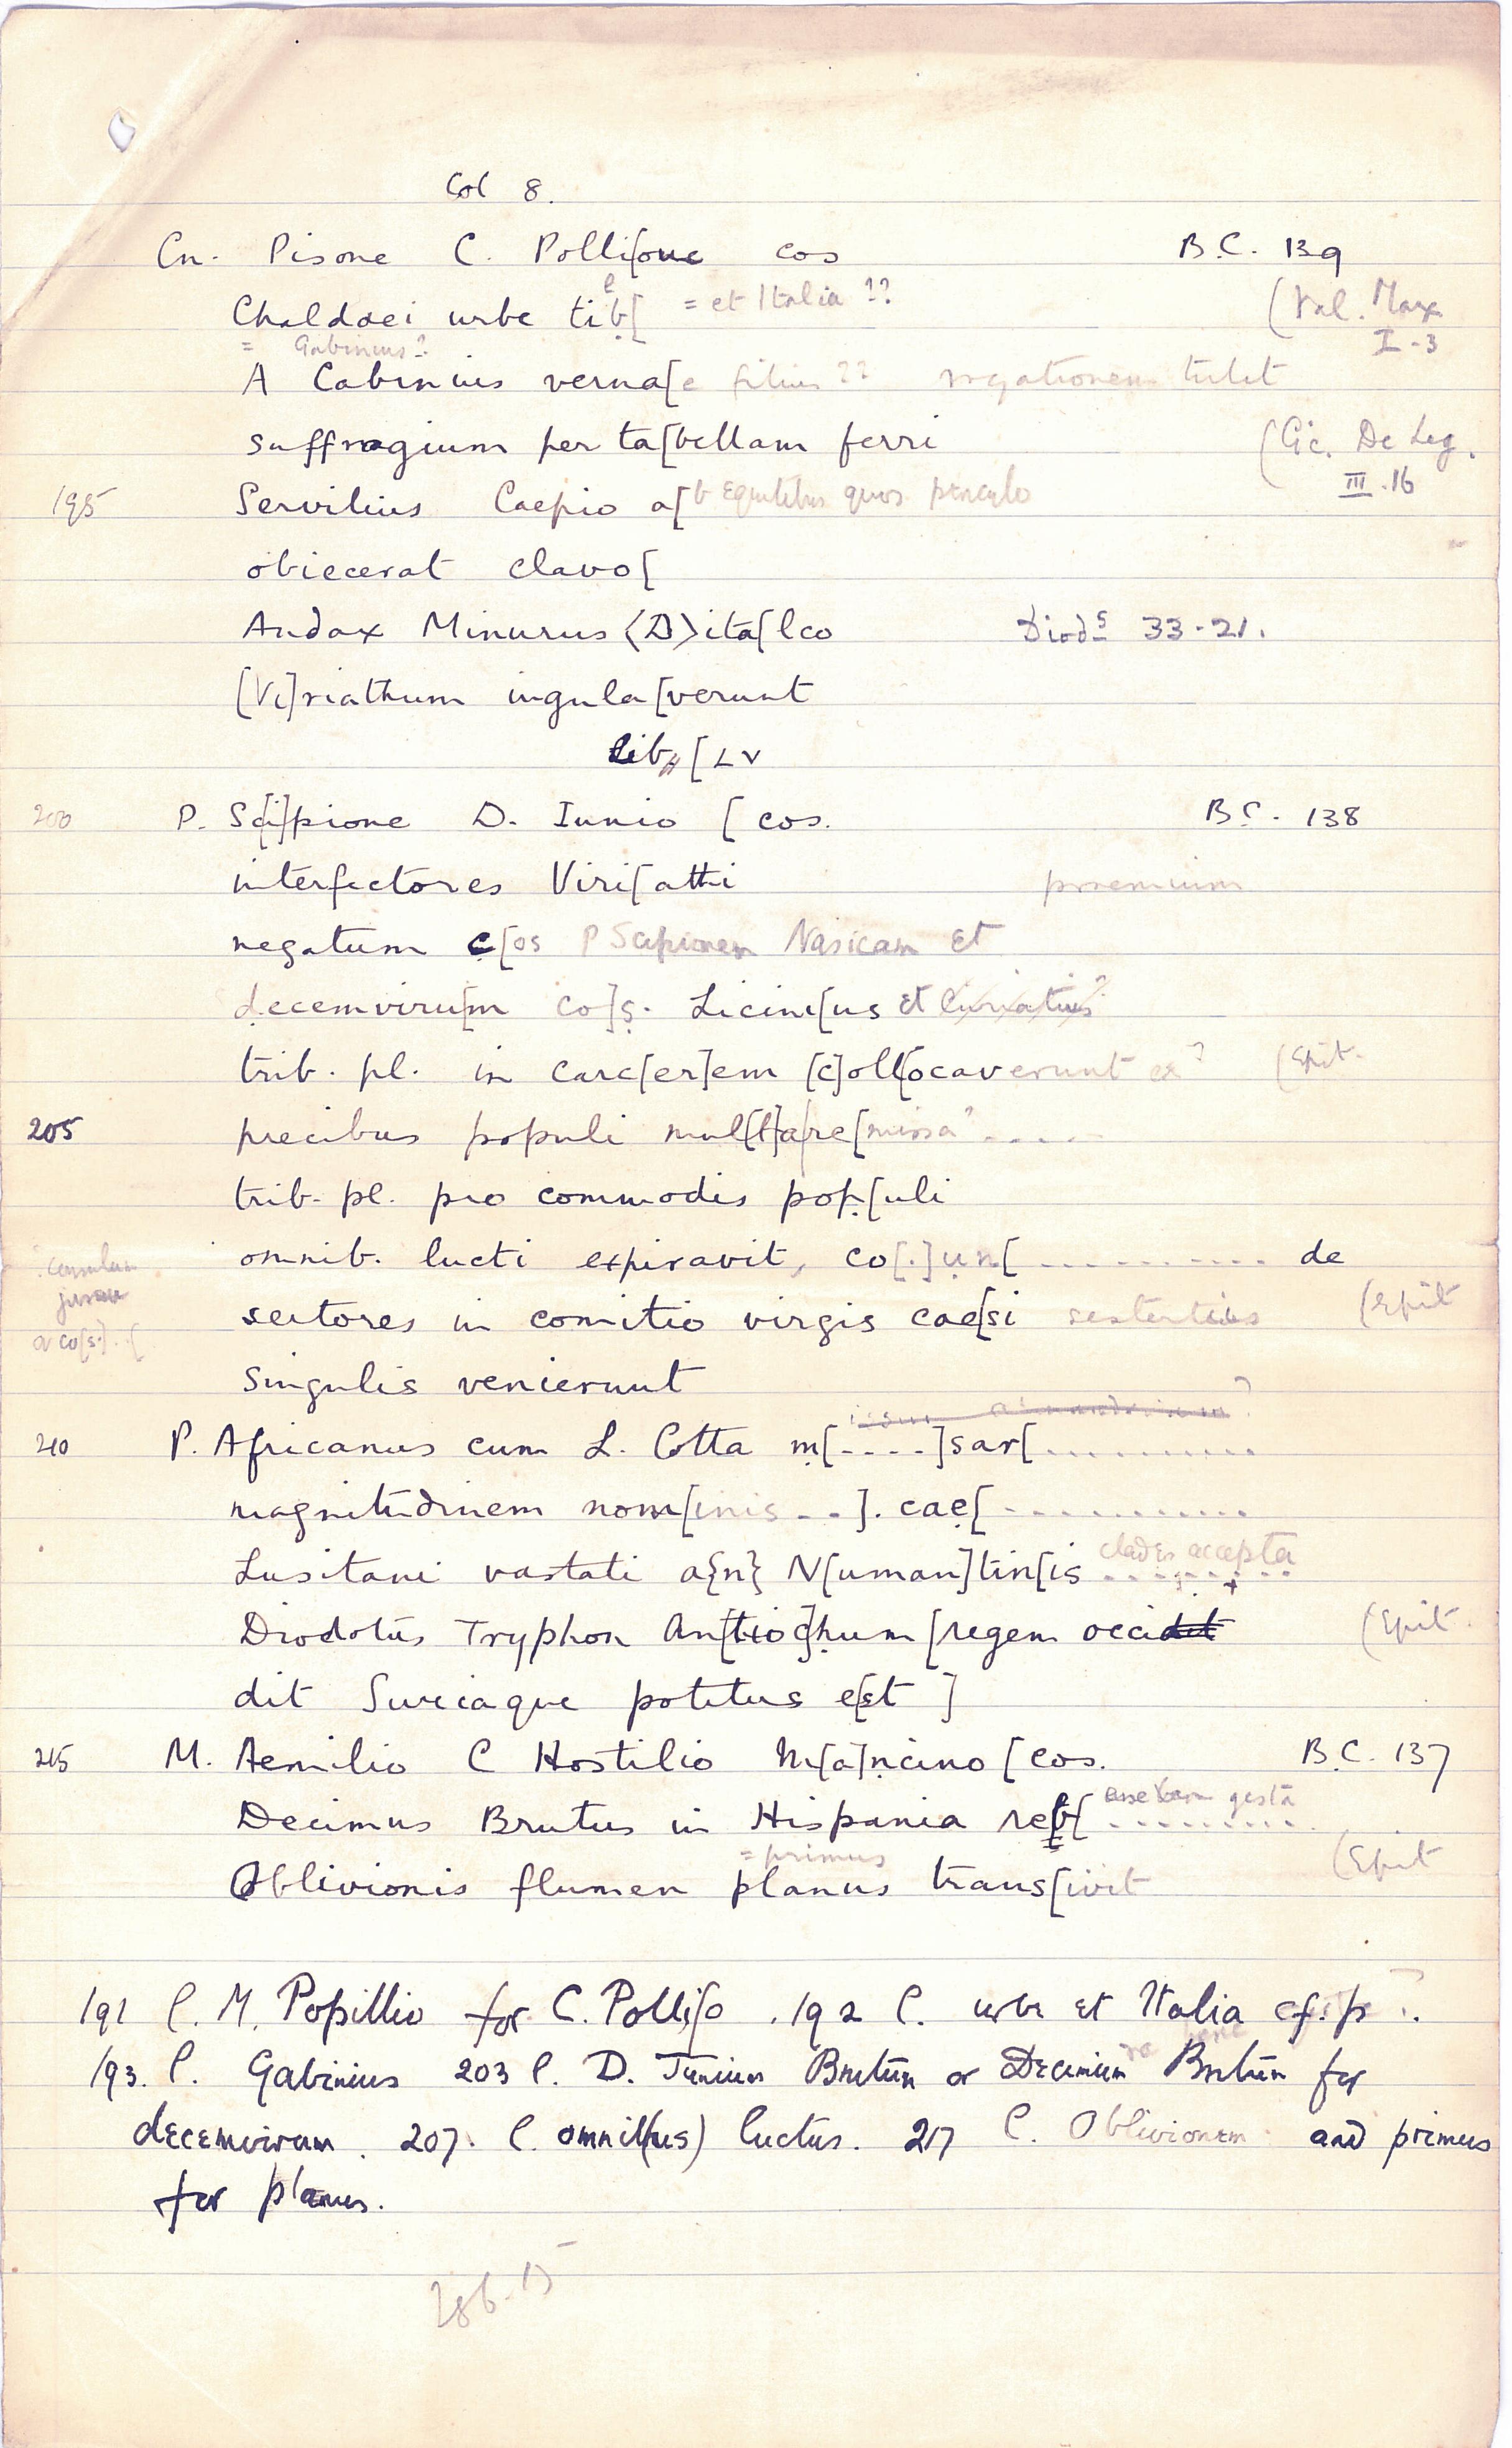 Col 8.
Cn. Pisone C. Polli[one cos B.C. 139
Chaldaei urbe tib[ = et Italia ?? (Val. Max
I-3
= Gabinius?
A Cabinius verna[e filius ?? rogationem tulit
suffragium per ta[bellam ferri (Cic. De Leg.
III.16
195 Servilius Caepio a[b equitibus quos periculo
obiecerat clavo[
Audax Minurus <D>ita[lco Diodˢ 33-21.
[Vi]riathum iugula[verunt
Lib [LV
200 P. Sc[i]pione D. Iunio [cos. B.C. 138
interfectores Viri[athi praemium
negatum c[os P Scipionem Nasicam et
decemviru[m co]s. Licini[us et Curiatius?
trib. pl. in carc[er]em [c]oll[ocaverunt ex? (Epit.
205 precibus populi mul[t]a re[missa? ....
trib. pl. pro commodis pop[uli
omnib. lucti expiravit, co[.]un[.......... de
sertores in comitio virgis cae[si sestertiis (Epit
a co[s]. [
singulis venierunt
210 P. Africanus cum L. Cotta m[....]sar[..........
magnitudinem nom[inis ..]. cae[..........
Lusitani vastati a{n} N[uman]tin[is clades accepta
Diodotus Tryphon An[tioc]hum [regem occi
(Epit.
dit Suriaque potitus e[st]
215 M. Aemilio C Hostilio M[a]ncino [cos. B.C. 137
Decimus Brutus in Hispania re b[ gesta
= primus (Epit
Oblivionis flumen planus trans[ivit
191 l. M. Popillio for C. Polli[o . 192 l. urbe et Italia
193. l. Gabinius 203 l. D. Junium Brutum or Decimum Brutum for
decemvirum. 207. l. omnib(us) luctus. 217 l. Oblivionem and primus
for planus.